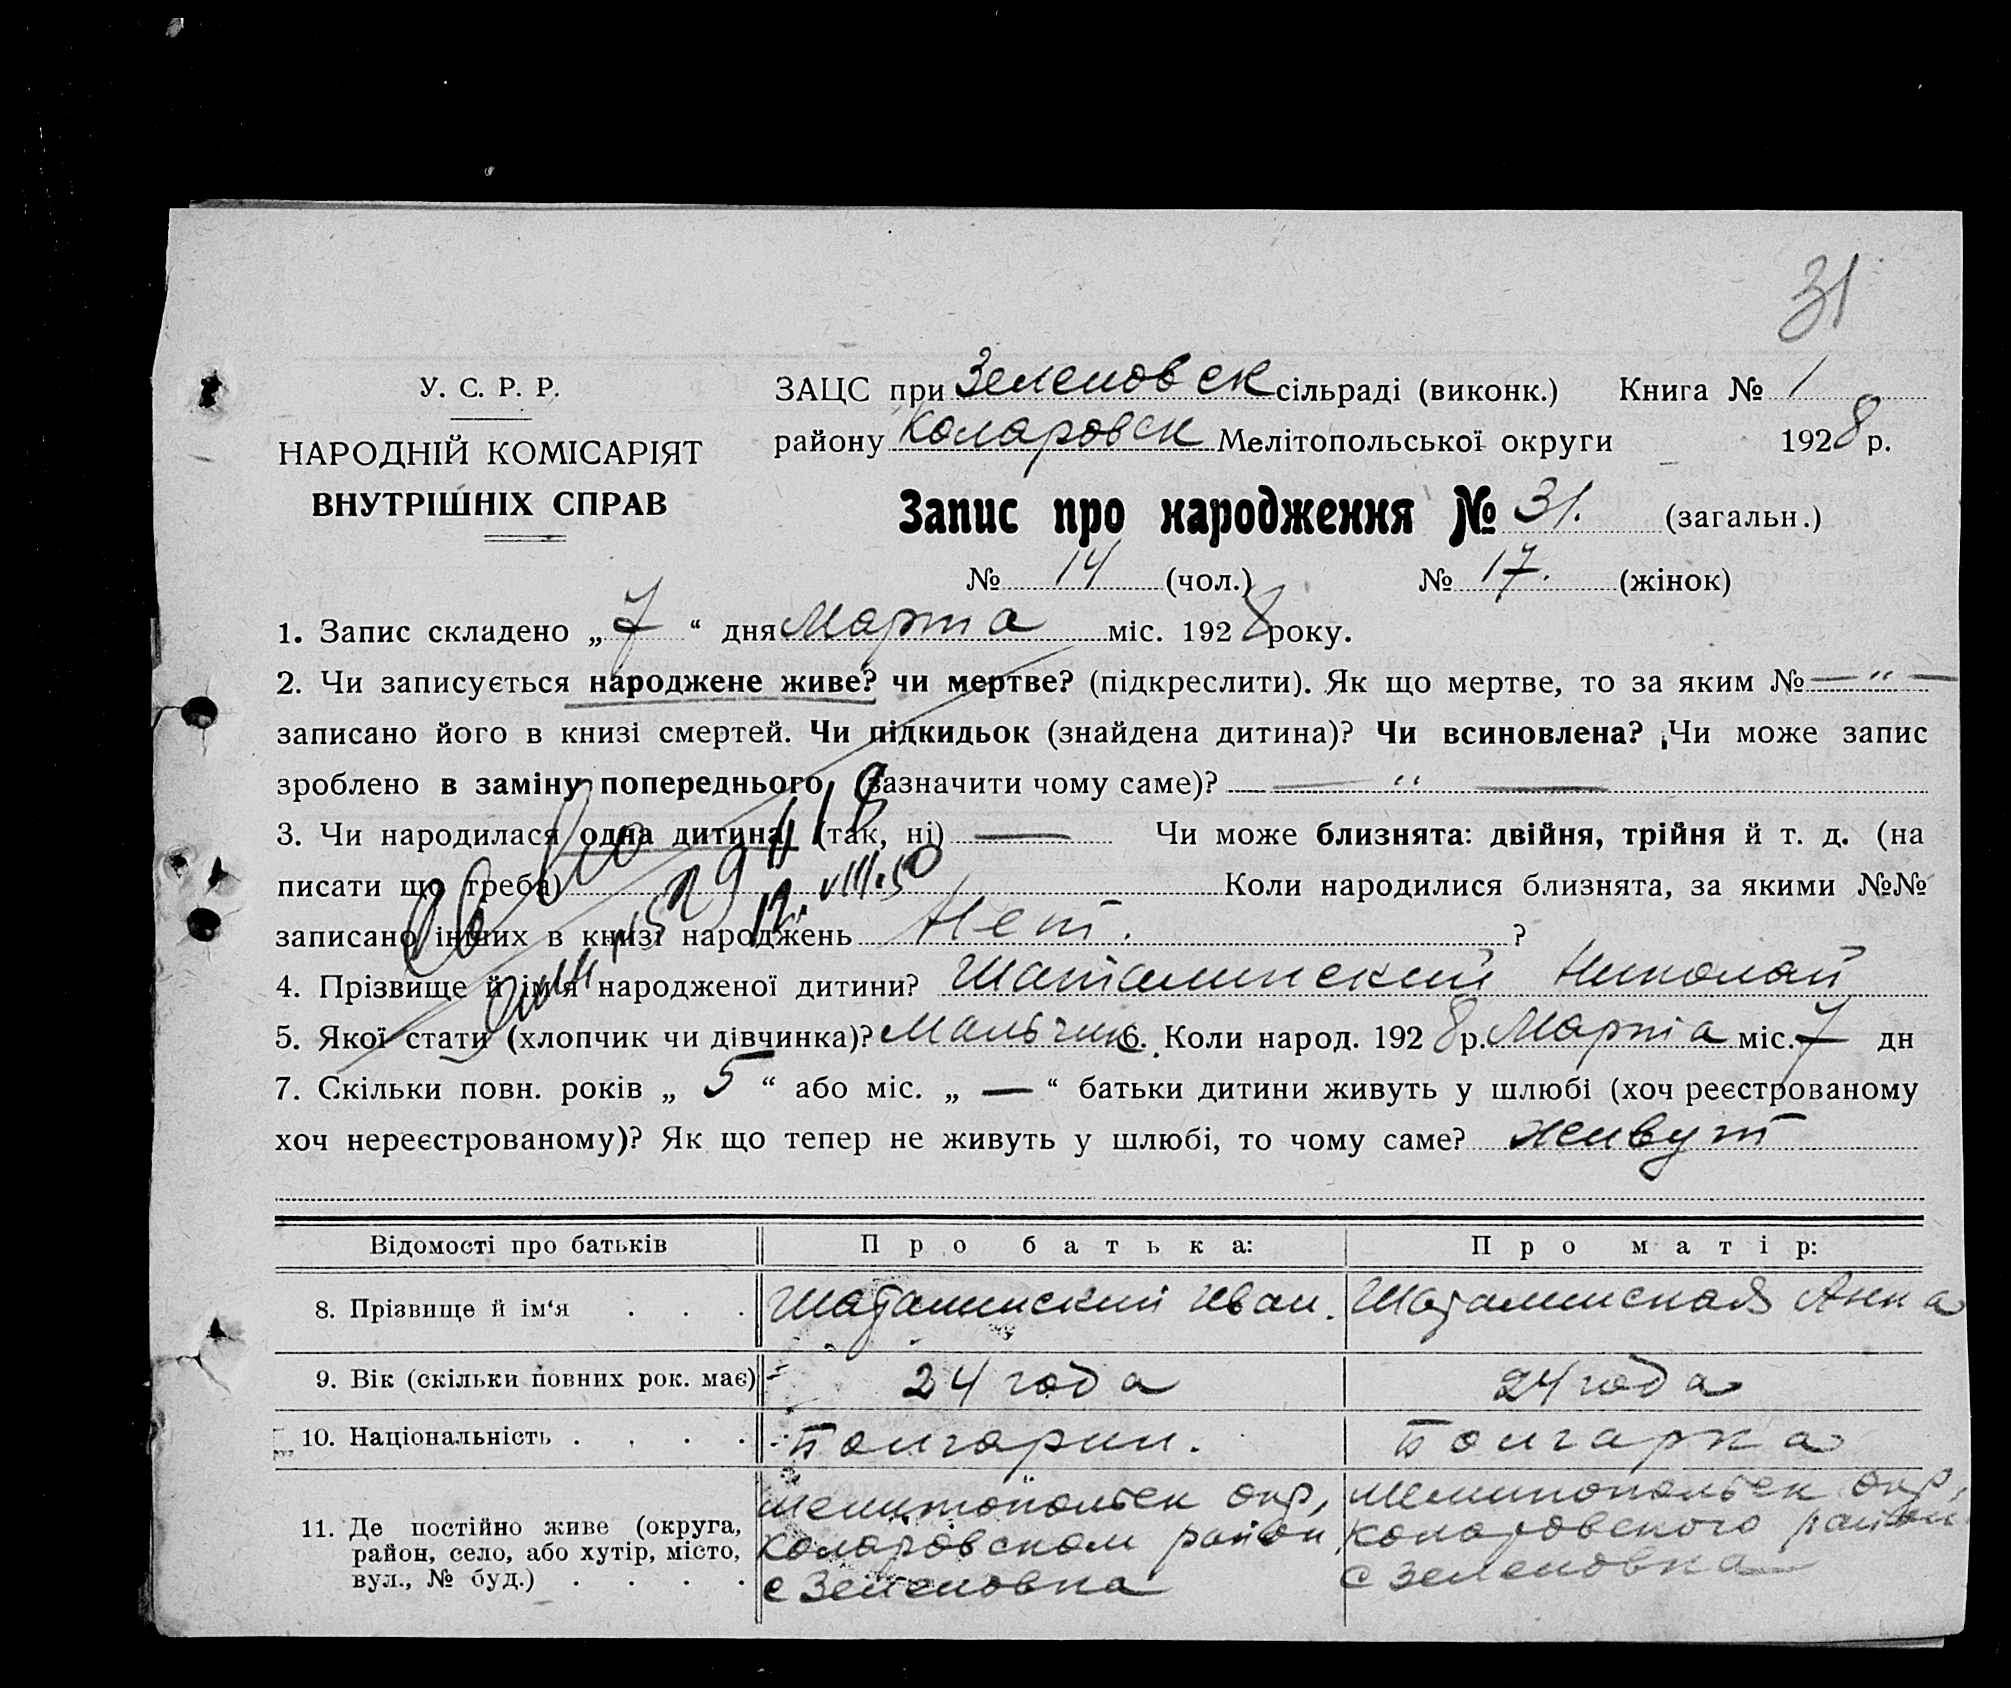 31
У. С. Р. Р.
НАРОДНІЙ КОМІСАРІЯТ
ВНУТРІШНІХ СПРАВ
ЗАЦС при Зеленовск сільраді (виконк.) Книга № 1
району Коларовск Мелітопольської округи 1928 р.
Запис про народження № 31. (загальн.)
№ 14 (чол.) № 17. (жінок)
1. Запис складено „ 7 “ дня Марта міс. 1928 року.
2. Чи записується народжене живе? чи мертве? (підкреслити). Як що мертве, то за яким № — „ —
записано його в книзі смертей. Чи підкидьок (знайдена дитина)? Чи всиновлена? Чи може запис
зроблено в заміну попереднього (зазначити чому саме)? — „ —
3. Чи народилася одна дитина (так, ні) — Чи може близнята: двійня, трійня й т. д. (на
писати що треба) Коли народилися близнята, за якими №№
12.VIII.50
записано інших в книзі народжень Нет. ?
4. Прізвище й ім'я народженої дитини? Шаталинский Николай
5. Якої стати (хлопчик чи дівчинка)? Мальчик 6. Коли народ. 1928 р. Марта міс. 7 дн
7. Скільки повн. років „ 5 “ або міс. „ — “ батьки дитини живуть у шлюбі (хоч реєстрованому
хоч нереєстрованому)? Як що тепер не живуть у шлюбі, то чому саме? живут
Відомості про батьків Про батька: Про матір:
8. Прізвище й ім‘я . . . Шаталинский Иван. Шаталинская Анна
9. Вік (скільки повних рок. має) 24 года 24 года
10. Національність . . . . Болгарин. Болгарка
11. Де постійно живе (округа, район, село, або хутір, місто, вул., № буд.) . . . . Мелитопольск окр, Коларовском район с Зеленовка Мелитопольск окр, Коларовского район с Зеленовка